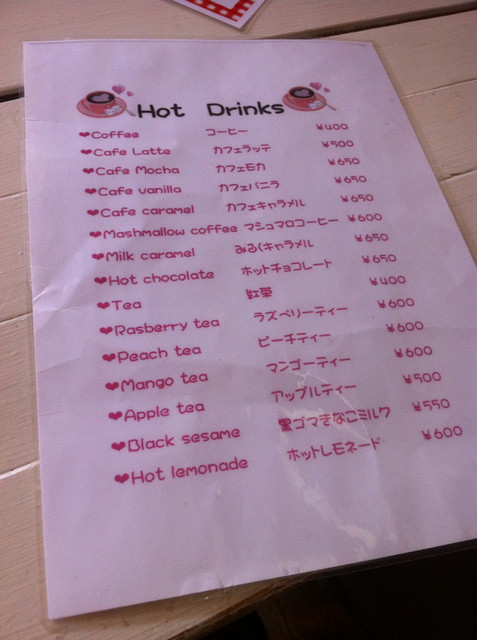 Hot Drinks
❤Coffee コーヒー ¥400
❤Cafe Latte カフェラッテ ¥500
❤Cafe Mocha カフェモカ ¥650
❤Cafe vanilla カフェバニラ ¥650
❤Cafe caramel カフェキャラメル ¥650
❤Mashmallow coffee マシュマロコーヒー ¥600
❤Milk caramel みるくキャラメル ¥650
❤Hot chocolate ホットチョコレート ¥650
❤Tea 紅茶 ¥400
❤Rasberry tea ラズベリーティー ¥600
❤Peach tea ピーチティー ¥600
❤Mango tea マンゴーティー ¥600
❤Apple tea アップルティー ¥500
❤Black sesame 黒ゴマきなこミルク ¥550
❤Hot lemonade ホットレモネード ¥600